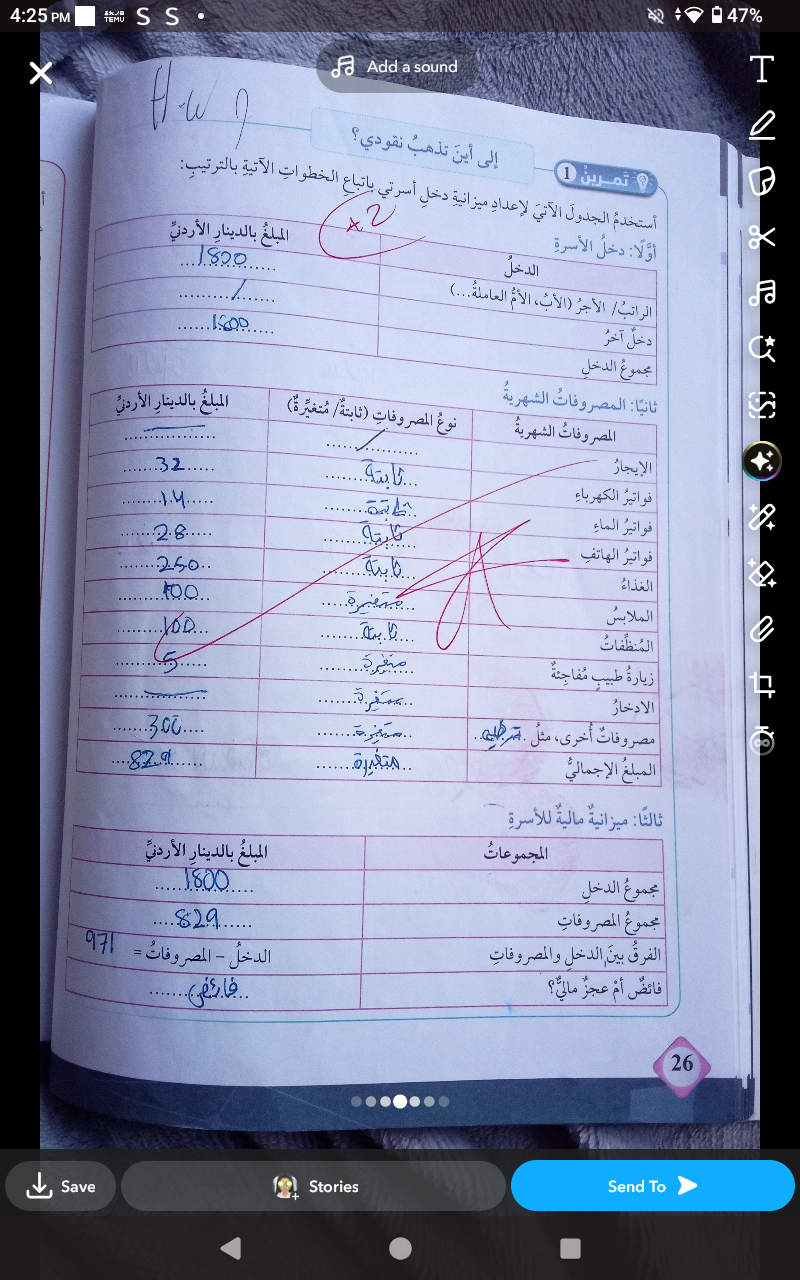 4:25 PM TEMU S S • 47%
Add a sound
H.w
إلى أينَ تذهبُ نقودي؟
تمرينُ 1
أستخدمُ الجدولَ الآتيَ لإعدادِ ميزانيةِ دخلِ أسرتي باتباعِ الخطواتِ الآتيةِ بالترتيبِ:
×2
أوّلًا: دخلُ الأسرةِ
الدخلُ المبلغُ بالدينارِ الأردنيِّ
الراتبُ/ الأجرُ (الأبُ، الأمُّ العاملةُ...) 1800
دخلٌ آخرُ /
مجموعُ الدخلِ 1800
ثانيًا: المصروفاتُ الشهريةُ
المصروفاتُ الشهريةُ نوعُ المصروفاتِ (ثابتةٌ/ مُتغيِّرةٌ) المبلغُ بالدينارِ الأردنيِّ
الإيجارُ /
فواتيرُ الكهرباءِ ثابتة 32
فواتيرُ الماءِ ثابتة 14
فواتيرُ الهاتفِ ثابتة 28
الغذاءُ ثابتة 250
الملابسُ متغيرة 100
المُنظِّفاتُ ثابتة 100
زيارةُ طبيبٍ مُفاجِئةٌ متغيرة 5
الادخارُ متغيرة
مصروفاتٌ أُخرى، مثلُ متغيرة 300
المبلغُ الإجماليُّ متغيرة 829
ثالثًا: ميزانيةٌ ماليةٌ للأسرةِ
المجموعاتُ المبلغُ بالدينارِ الأردنيِّ
مجموعُ الدخلِ 1800
مجموعُ المصروفاتِ 829
الفرقُ بينَ الدخلِ والمصروفاتِ الدخلُ – المصروفاتُ = 971
فائضٌ أمْ عجزٌ ماليٌّ؟ فائض
26
Save Stories Send To